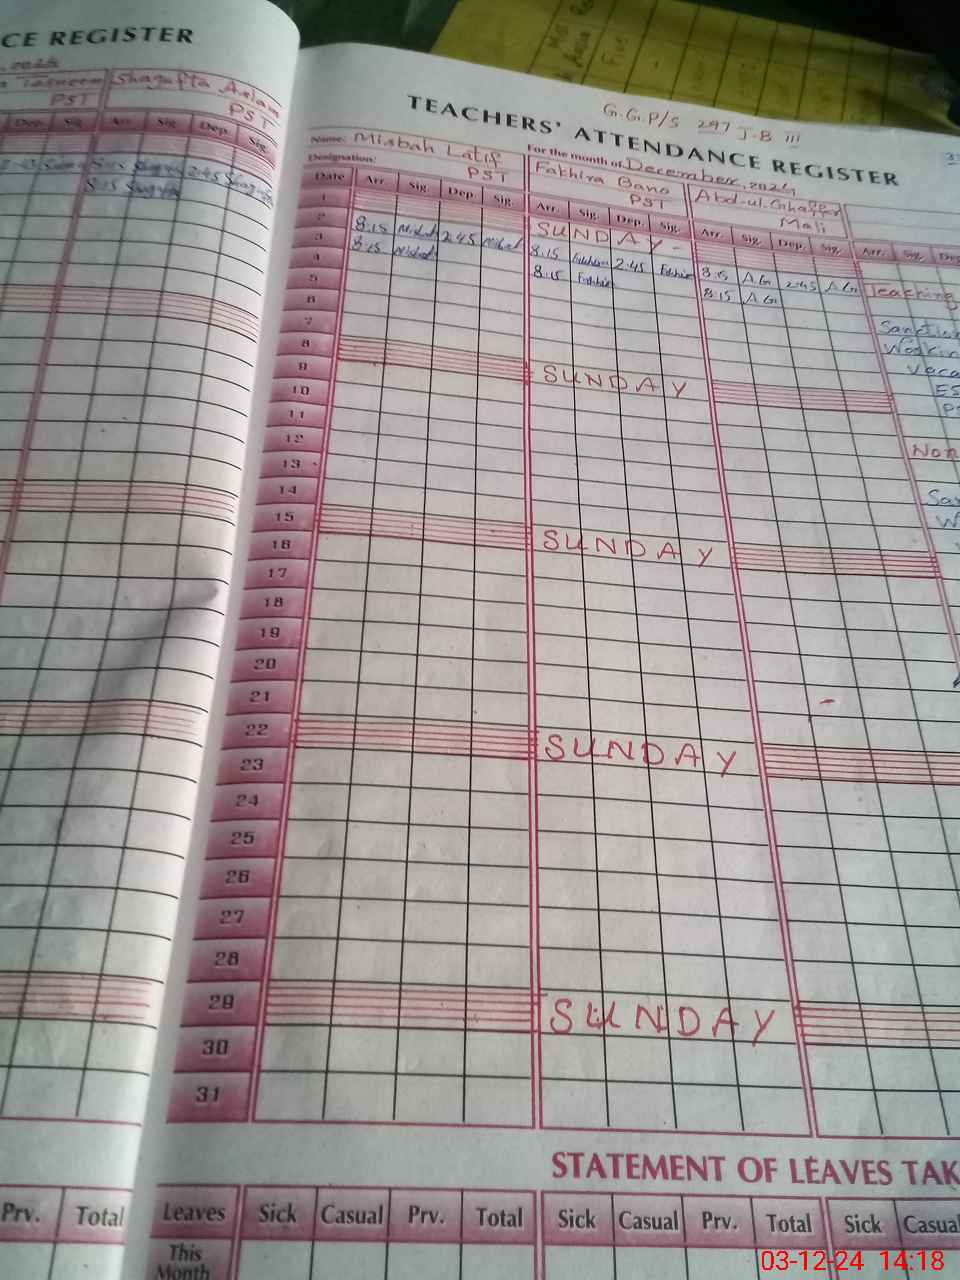 CE REGISTER
Tasneem Shagufta Aslam
PST PST
Dep. Sig. Arr. Sig. Dep. Sig.
8:15 Shagufta 2:45 Shagufta
8:15 Shagufta
G.G.P/S 297 J-B III
TEACHERS' ATTENDANCE REGISTER
Name: Misbah Latif For the month of December, 2024
Designation: PST Fakhira Bano PST Abd-ul-Ghaffar Mali
Date Arr. Sig. Dep. Sig. Arr. Sig. Dep. Sig. Arr. Sig. Dep. Sig. Arr. Sig. Dep
1 SUNDAY -
2 8:15 Misbah 2:45 Misbah 8:15 Fakhira 2:45 Fakhira 8:15 A.G 2:45 A.G Teaching
3 8:15 Misbah 8:15 Fakhira 8:15 A.G
4
5 Sanction
6 Workin
7 Vaca
8 SUNDAY ES
9 PS
10
11 Non
12
13 San
14 W
15 SUNDAY
16
17
18
19
20
21
22 SUNDAY
23
24
25
26
27
28
29 SUNDAY
30
31
STATEMENT OF LEAVES TAK
Prv. Total Leaves Sick Casual Prv. Total Sick Casual Prv. Total Sick Casua
This Month
03-12-24 14:18